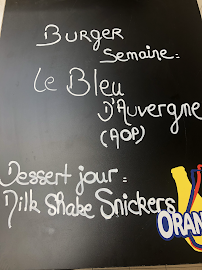 Burger
Semaine :
Le Bleu
D'Auvergne
(AOP)
Dessert jour :
Milk Shake Snickers
ORAN